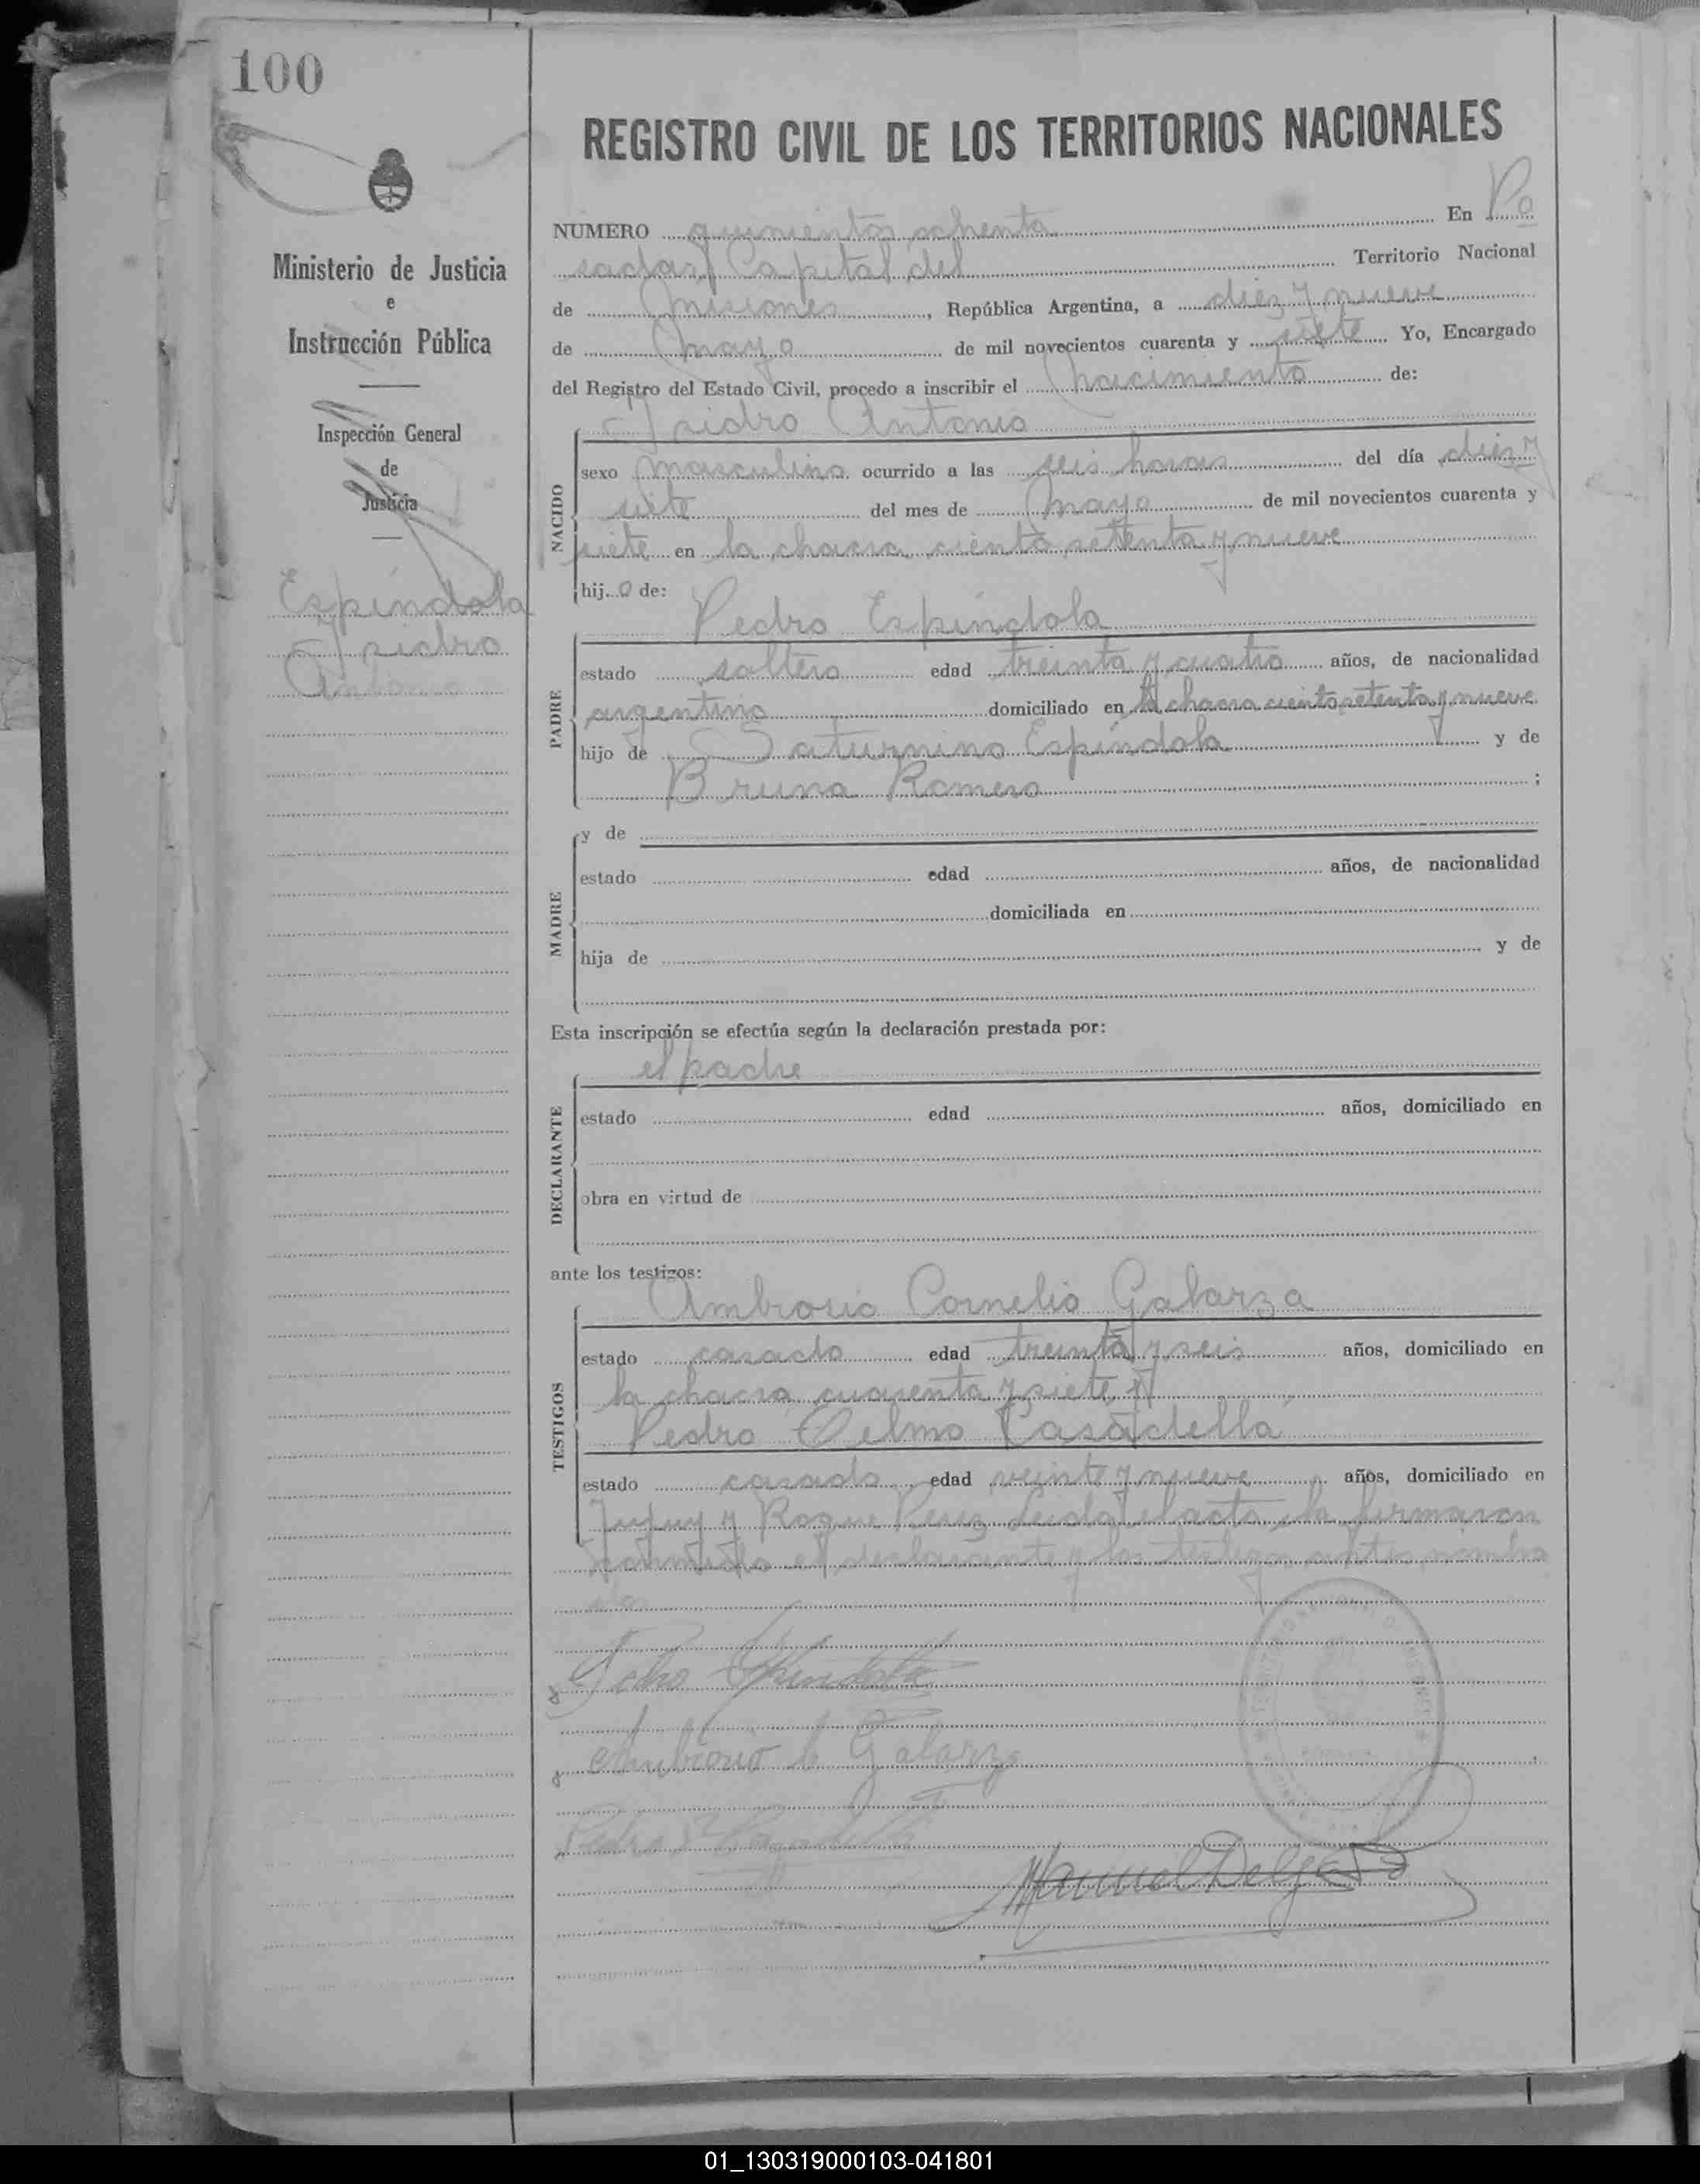 100
Ministerio de Justicia
e
Instrucción Pública
Inspección General
de
Justicia
Espíndola
Isidro
Antonio
REGISTRO CIVIL DE LOS TERRITORIOS NACIONALES
NUMERO quinientos ochenta En Po
sadas, Capital del Territorio Nacional
de Misiones, República Argentina, a diez y nueve
de Mayo de mil novecientos cuarenta y siete Yo, Encargado
del Registro del Estado Civil, procedo a inscribir el nacimiento de:
Isidro Antonio
NACIDO
sexo masculino ocurrido a las seis horas del día diez y
siete del mes de Mayo de mil novecientos cuarenta y
siete en la chacra ciento setenta y nueve
hijo de:
Pedro Espíndola
PADRE
estado soltero edad treinta y cuatro años, de nacionalidad
argentino domiciliado en la chacra ciento setenta y nueve
hijo de Saturnino Espíndola y de
Bruna Romero ;
MADRE
y de
estado edad años, de nacionalidad
domiciliada en
hija de y de
Esta inscripción se efectúa según la declaración prestada por:
el padre
DECLARANTE
estado edad años, domiciliado en
obra en virtud de
ante los testigos:
TESTIGOS
Ambrosio Cornelio Galarza
estado casado edad treinta y seis años, domiciliado en
la chacra cuarenta y siete y
Pedro Celmo Casadella
estado casado edad veinte y nueve años, domiciliado en
Jujuy y Roque Perez. Leida el acta, la firmaron
conmigo el declarante y los testigos antes nombra
dos
Pedro Espindola
Ambrosio C Galarza
Pedro
Manuel Delg
01_130319000103-041801